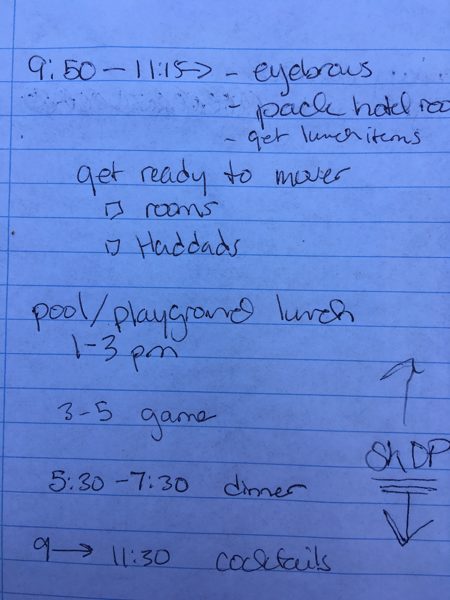 9:50 - 11:15 → - eyebrows
- pack hotel roo
- get lunch items
get ready to mover
□ rooms
□ Haddads
pool/playground lunch
1-3 pm
3-5 game
ShOP
5:30 - 7:30 dinner
9 → 11:30 cocktails